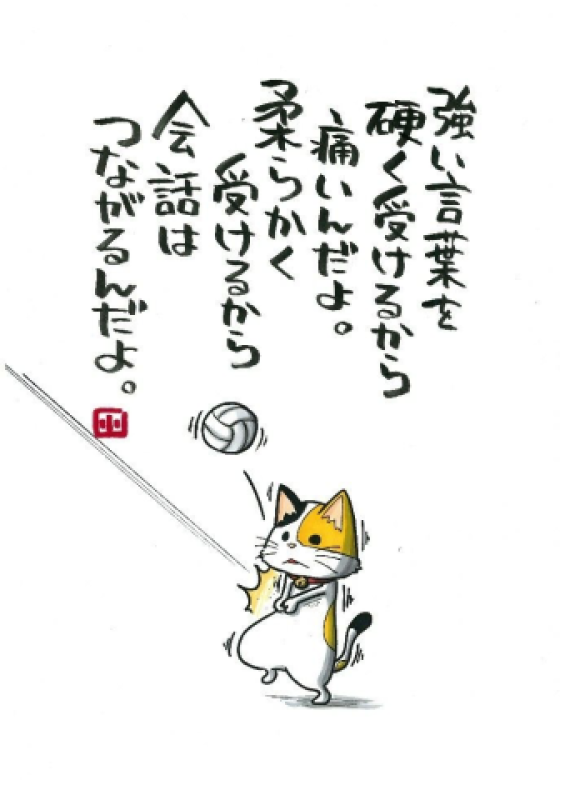 強い言葉を
硬く受けるから
痛いんだよ。
柔らかく
受けるから
会話は
つながるんだよ。